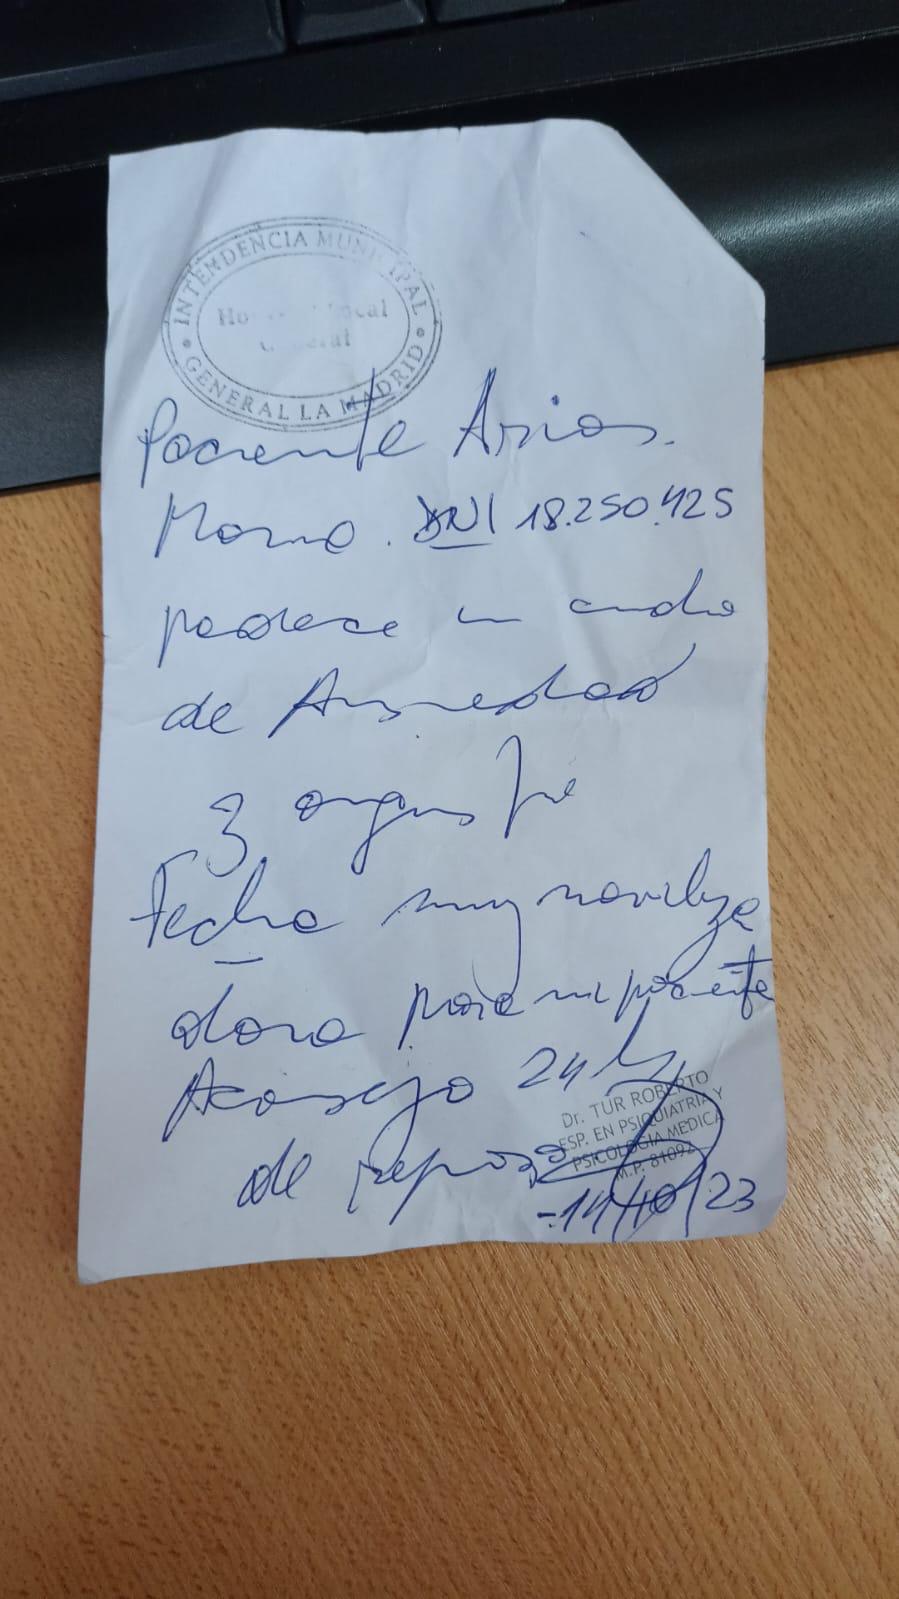 INTENDENCIA MUNICIPAL
Local
GENERAL LA MADRID
Paciente Arias
DNI 18.250.425
padece un cuadro
de Ansiedad
Fecha muy moviliza
dora para mi paciente
Aconsejo 24 hs
de reposo
Dr. TUR ROBERTO
ESP. EN PSIQUIATRIA Y
PSICOLOGIA MEDICA
M.P. 81092